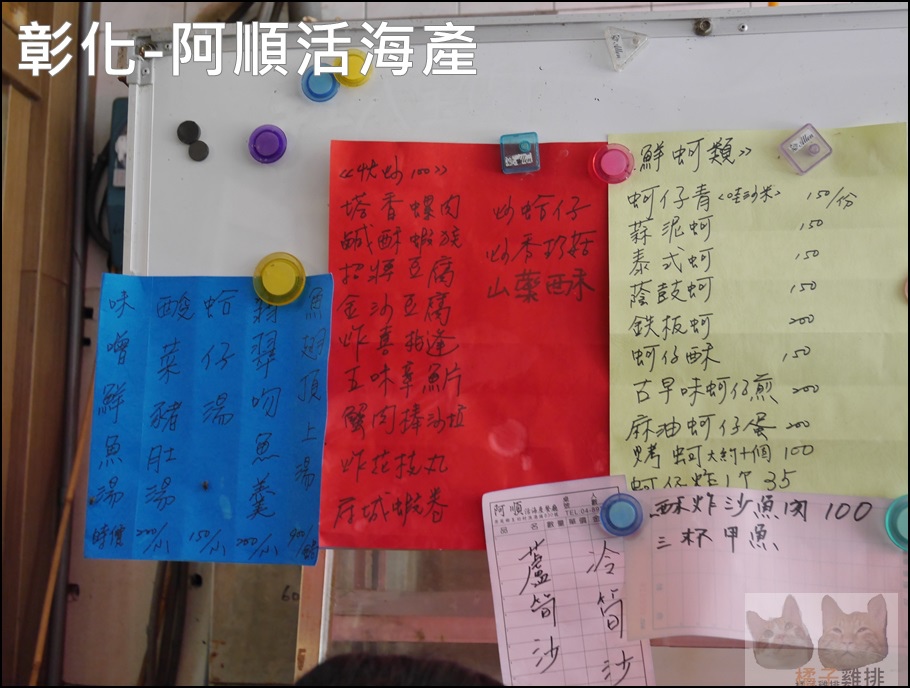 彰化-阿順活海產
味噌鮮魚湯 時價
酸菜豬肚湯 200/小
蛤仔湯 150/小
翡翠吻魚羹 200/小
魚翅頂上湯 900/鍋
<<快炒100>>
塔香螺肉
鹹酥蝦猴
招牌豆腐
金沙豆腐
炸喜相逢
五味章魚片
蟹肉棒沙拉
炸花枝丸
府城蝦卷
炒蛤仔
炒香珍菇
山藥酥
鮮蚵類>>
蚵仔青<哇沙米> 150/份
蒜泥蚵 150
泰式蚵 150
蔭鼓蚵 150
鉄板蚵 200
蚵仔酥 150
古早味蚵仔煎 200
麻油蚵仔蛋 200
烤蚵大約十個100
蚵仔炸1个35
酥炸沙魚肉 100
三杯甲魚
阿順活海產餐廳
品名 數量 單價
蘆筍沙
冷筍沙
橘子雞排